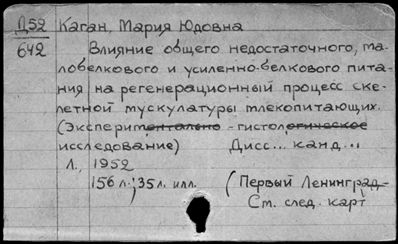 Д52 Каган, Мария Юдовна
642 Влияние общего недостаточного, ма-
лобелкового и усиленно-белкового пита-
ния на регенерационный процесс ске-
летной мускулатуры млекопитающих.
(Экспериментально-гистологическое
исследование) Дисс... канд...
Л., 1952
156 л.; 35 л. илл. (Первый Ленинград-
См. след. карт